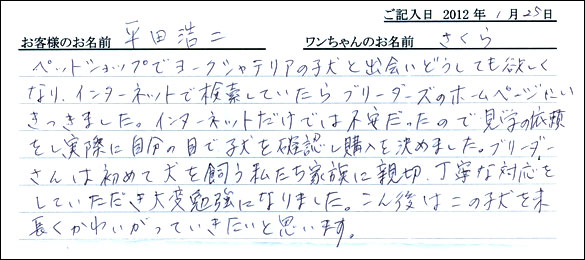 ご記入日 2012 年 1 月 25 日
お客様のお名前 平田浩二 ワンちゃんのお名前 さくら
ペットショップでヨークシャテリアの子犬と出会いどうしても欲しく
なり、インターネットで検索していたらブリーダーズのホームページにい
きつきました。インターネットだけでは不安だったので見学の依頼
をし実際に自分の目で子犬を確認し購入を決めました。ブリーダー
さんは初めて犬を飼う私たち家族に親切、丁寧な対応を
していただき大変勉強になりました。こん後はこの子犬を末
長くかわいがっていきたいと思います。